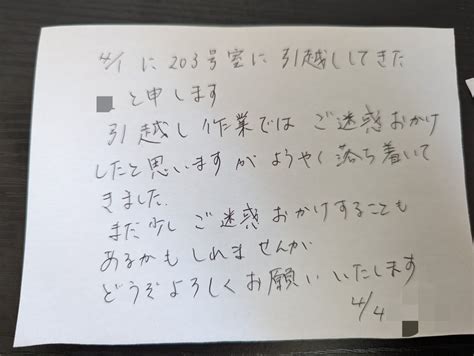 4/1 に 203号室に 引越ししてきた
と申します
引越し作業では ご迷惑おかけ
したと思いますが ようやく落ち着いて
きました.
まだ少し ご迷惑 おかけすることも
あるかもしれませんが
どうぞよろしくお願いいたします
4/4